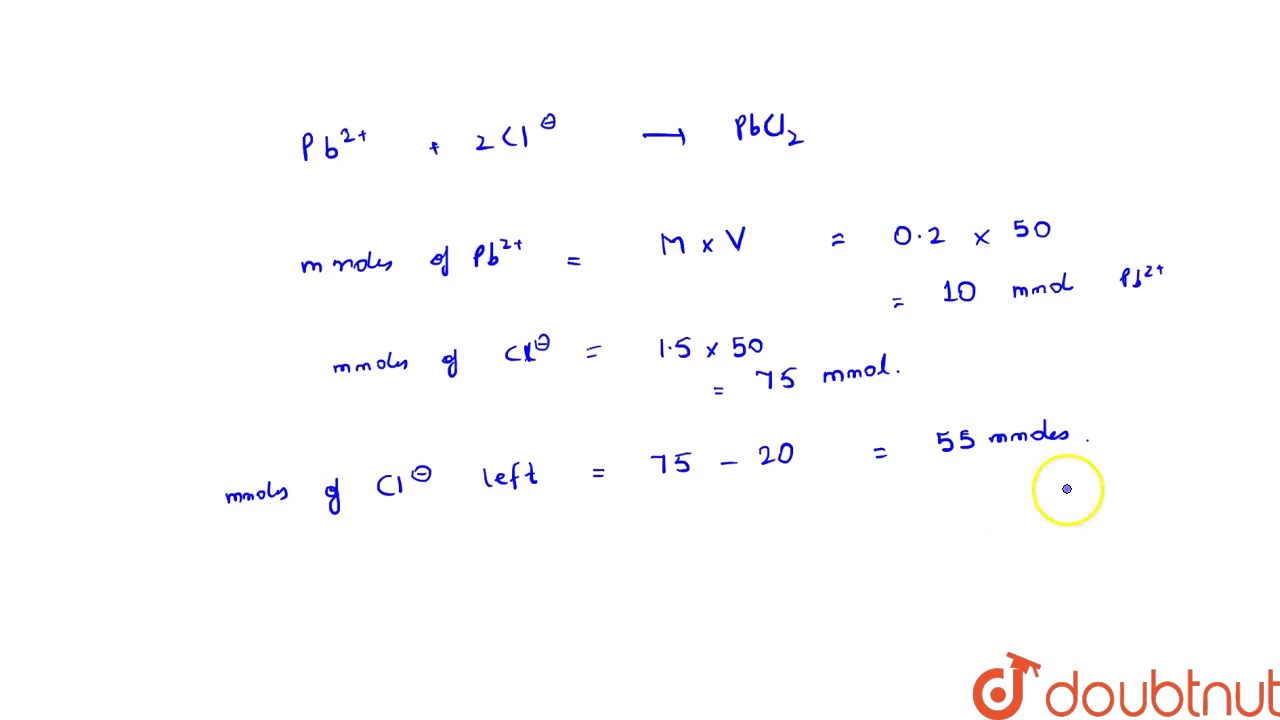 Pb²⁺ + 2Cl⊖ → PbCl₂
mmoles of Pb²⁺ = M × V = 0.2 × 50
= 10 mmol Pb²⁺
mmoles of Cl⊖ = 1.5 × 50
= 75 mmol.
mmoles of Cl⊖ left = 75 − 20 = 55 mmoles.
doubtnut